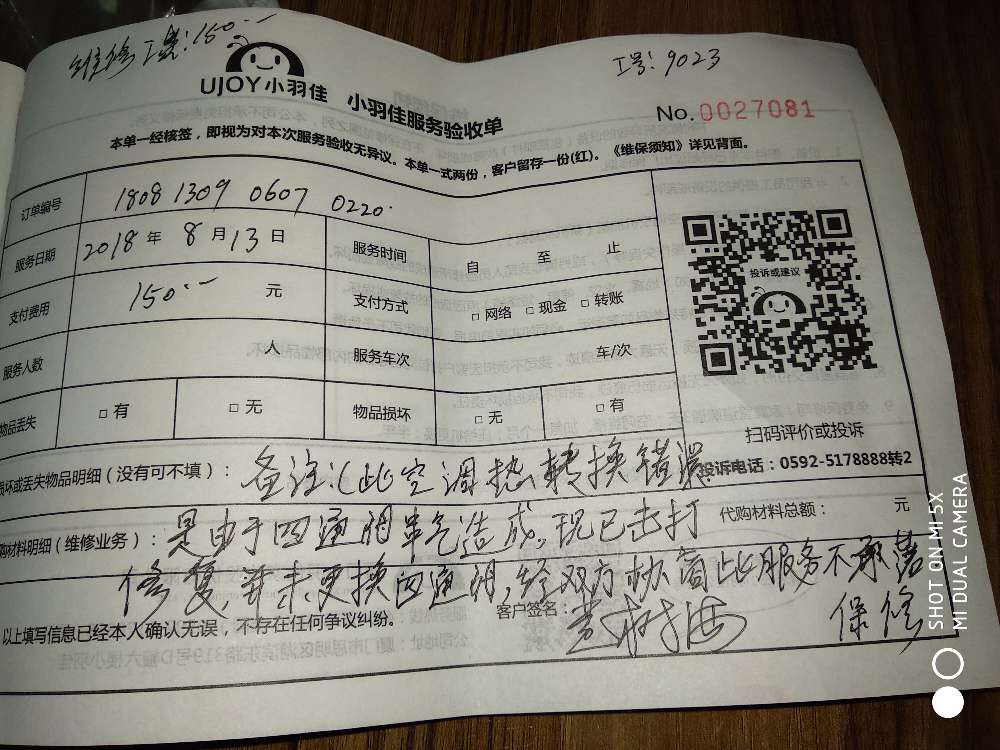 维修工费:150.--
工号:9023
UJOY小羽佳 小羽佳服务验收单
No.0027081
本单一经核签，即视为对本次服务验收无异议。本单一式两份，客户留存一份(红)。《维保须知》详见背面。
订单编号 1808 1309 0607 0220.
服务日期 2018年8月13日 服务时间 自 至 止
支付费用 150.-- 元 支付方式 □网络 □现金 □转账
服务人数 人 服务车次 车/次
物品丢失 □有 □无 物品损坏 □无 □有
投诉或建议
扫码评价或投诉
投诉电话：0592-5178888转2
损坏或丢失物品明细（没有可不填）： 备注:(此空调热转换错误
购材料明细（维修业务）： 是由于四通阀串气造成,现已击打
代购材料总额： 元
修复,并未更换四通阀,经双方协商此服务不承诺
保修
以上填写信息已经本人确认无误，不存在任何争议纠纷。 客户签名：
SHOT ON MI 5X
MI DUAL CAMERA